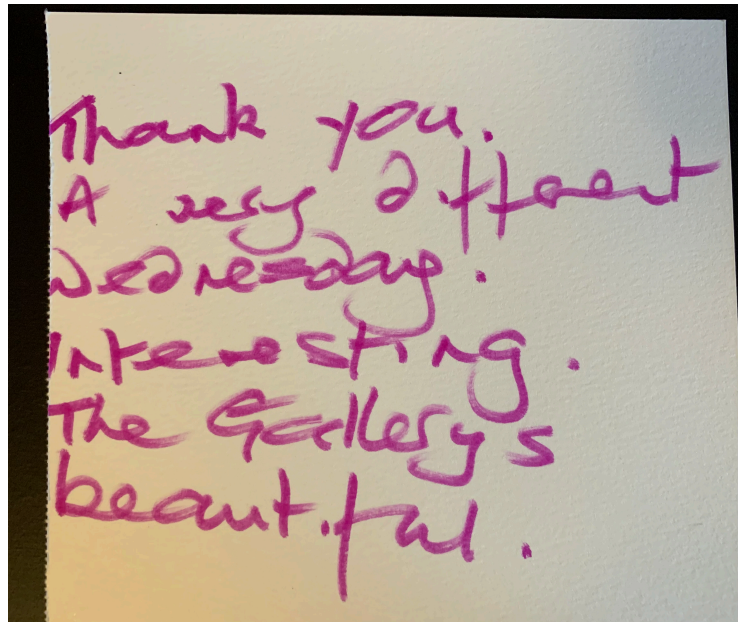 Thank you.
A very different
Wednesday.
Interesting.
The Gallery's
beautiful.